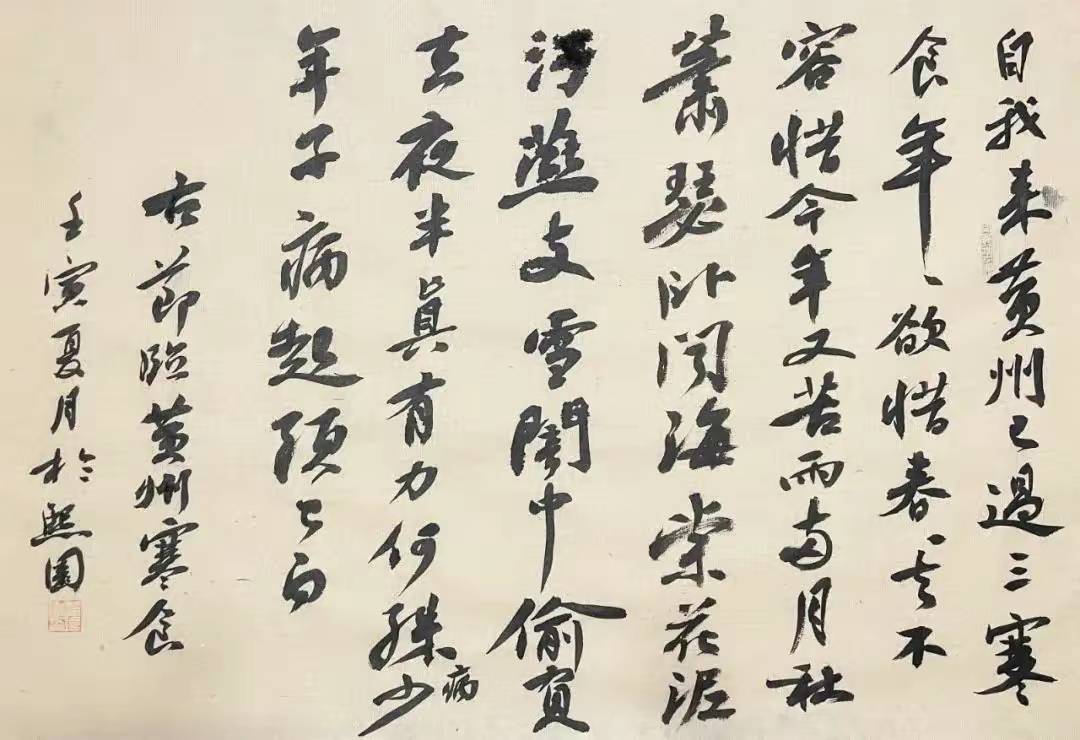 自我来黄州已過三寒
食年、欲惜春、去不
容惜今年又苦雨兩月秋
蕭瑟卧聞海棠花泥
污燕支雪闇中偷負
去夜半眞有力何殊少
病
年子病起須已白
右節臨黄州寒食
壬寅夏月於熙園